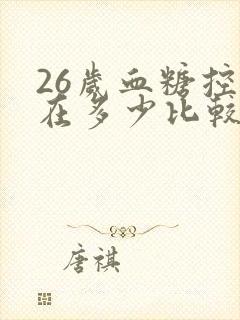 26岁血糖控
在多少比較
唐祺